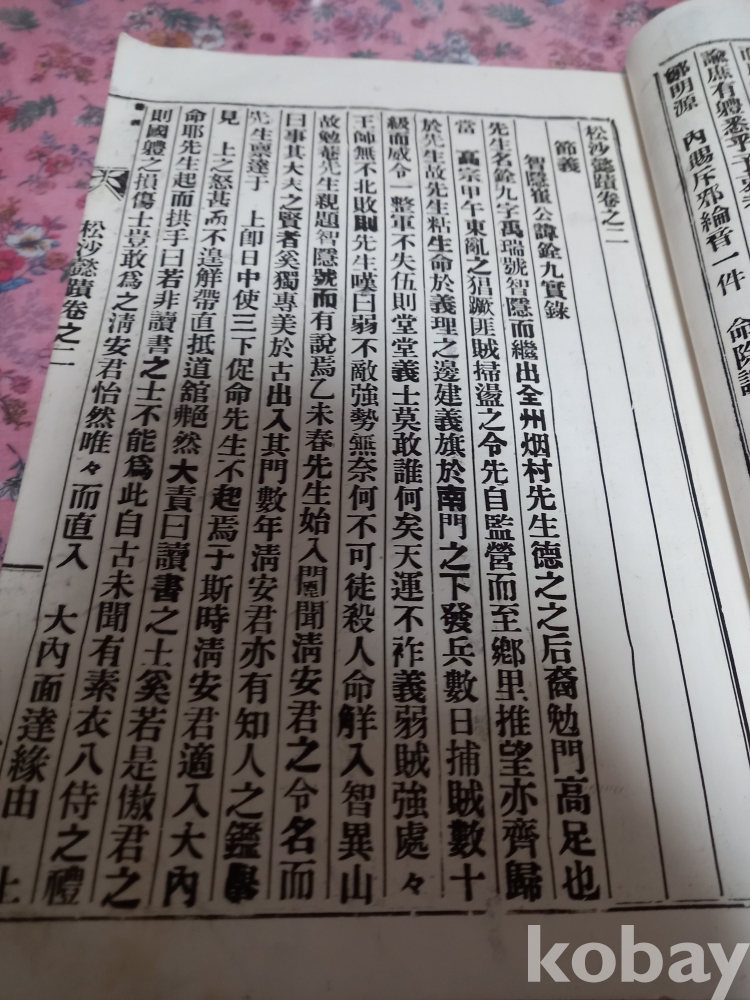 論應有體悉乎
鄭明源 內賜斥邪綸音一件 命除
松沙懿蹟卷之二
節義
智隱崔公諱銓九實錄
先生名銓九字禹瑞號智隱而繼出全州烟村先生德之之后裔勉門高足也
當 高宗甲午東亂之猖蹶匪賊掃盪之令先自監營而至鄕里推望亦齊歸
於先生故先生粘生命於義理之邊建義旗於南門之下發兵數日捕賊數十
級而威令一整軍不失伍則堂堂義士莫敢誰何矣天運不祚義弱賊強處々
王師無不北敗則先生嘆曰弱不敵強勢無奈何不可徒殺人命解入智異山
故勉菴先生親題智隱號而有說焉乙未春先生始入聞淸安君之令名而
曰事其大夫之賢者奚獨專美於古出入其門數年淸安君亦有知人之鑑擧
先生禀達于 上卽日中使三下促命先生不起焉于斯時淸安君適入大內
見 上之怒甚而不遑解帶直抵道舘艴然大責曰讀書之士奚若是傲君之
命耶先生起而拱手曰若非讀書之士不能爲此自古未聞有素衣入侍之禮
則國軆之損傷士豈敢爲之淸安君怡然唯々而直入 大內面達緣由 上
松沙懿蹟卷之二
kobay